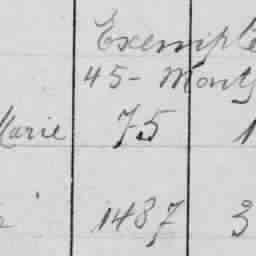 Exemple
45 - Mont
Marie 75 1
1487 3